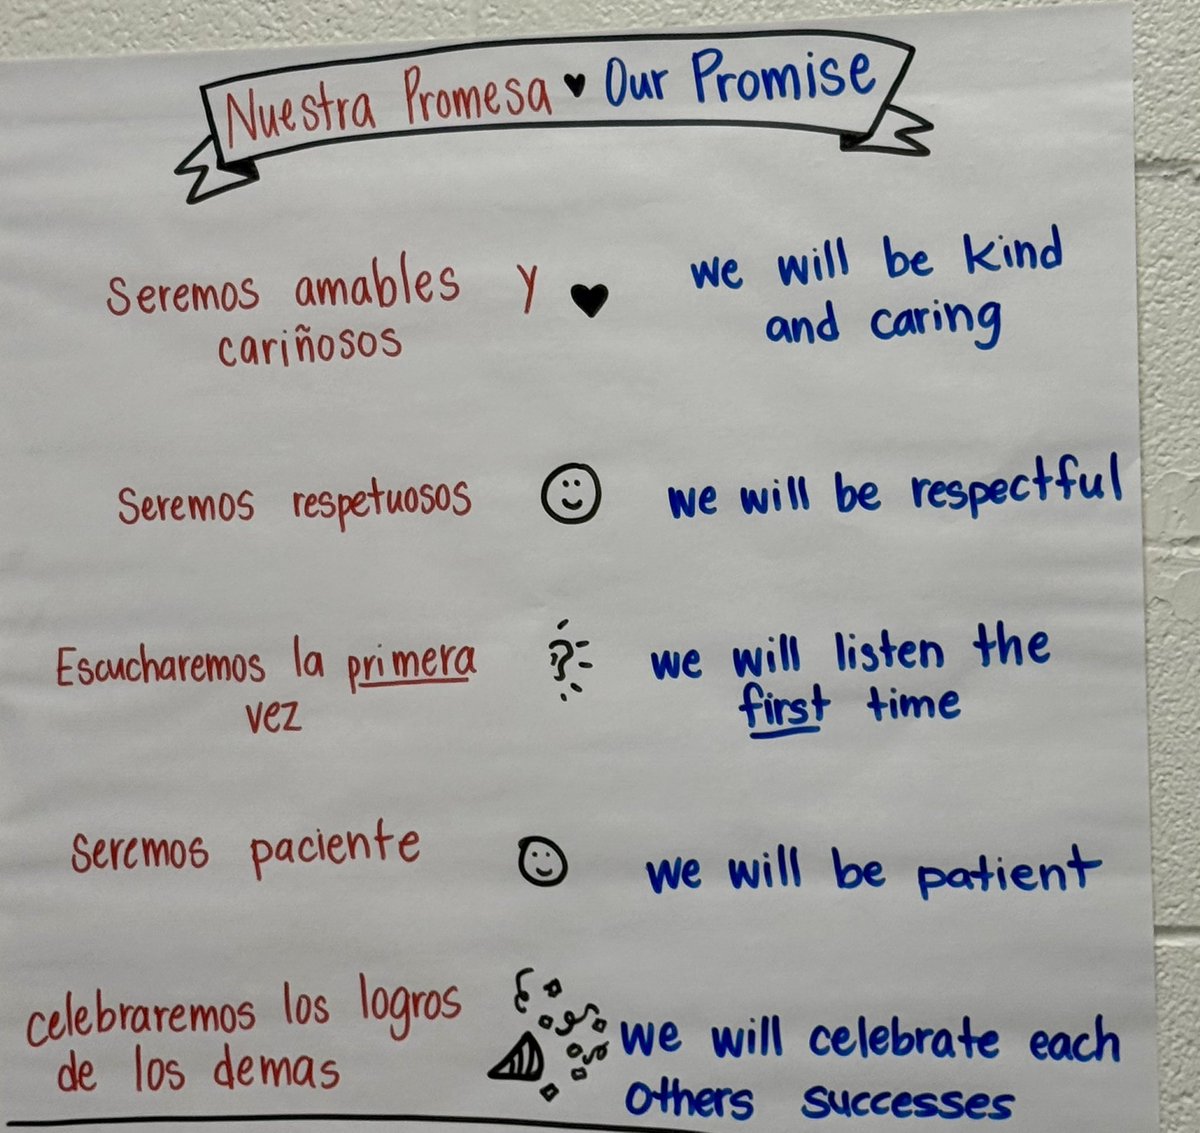 Nuestra Promesa ♥ Our Promise
Seremos amables y
cariñosos
we will be kind
and caring
Seremos respetuosos
we will be respectful
Escucharemos la primera
vez
we will listen the
first time
Seremos paciente
we will be patient
celebraremos los logros
de los demas
we will celebrate each
others successes